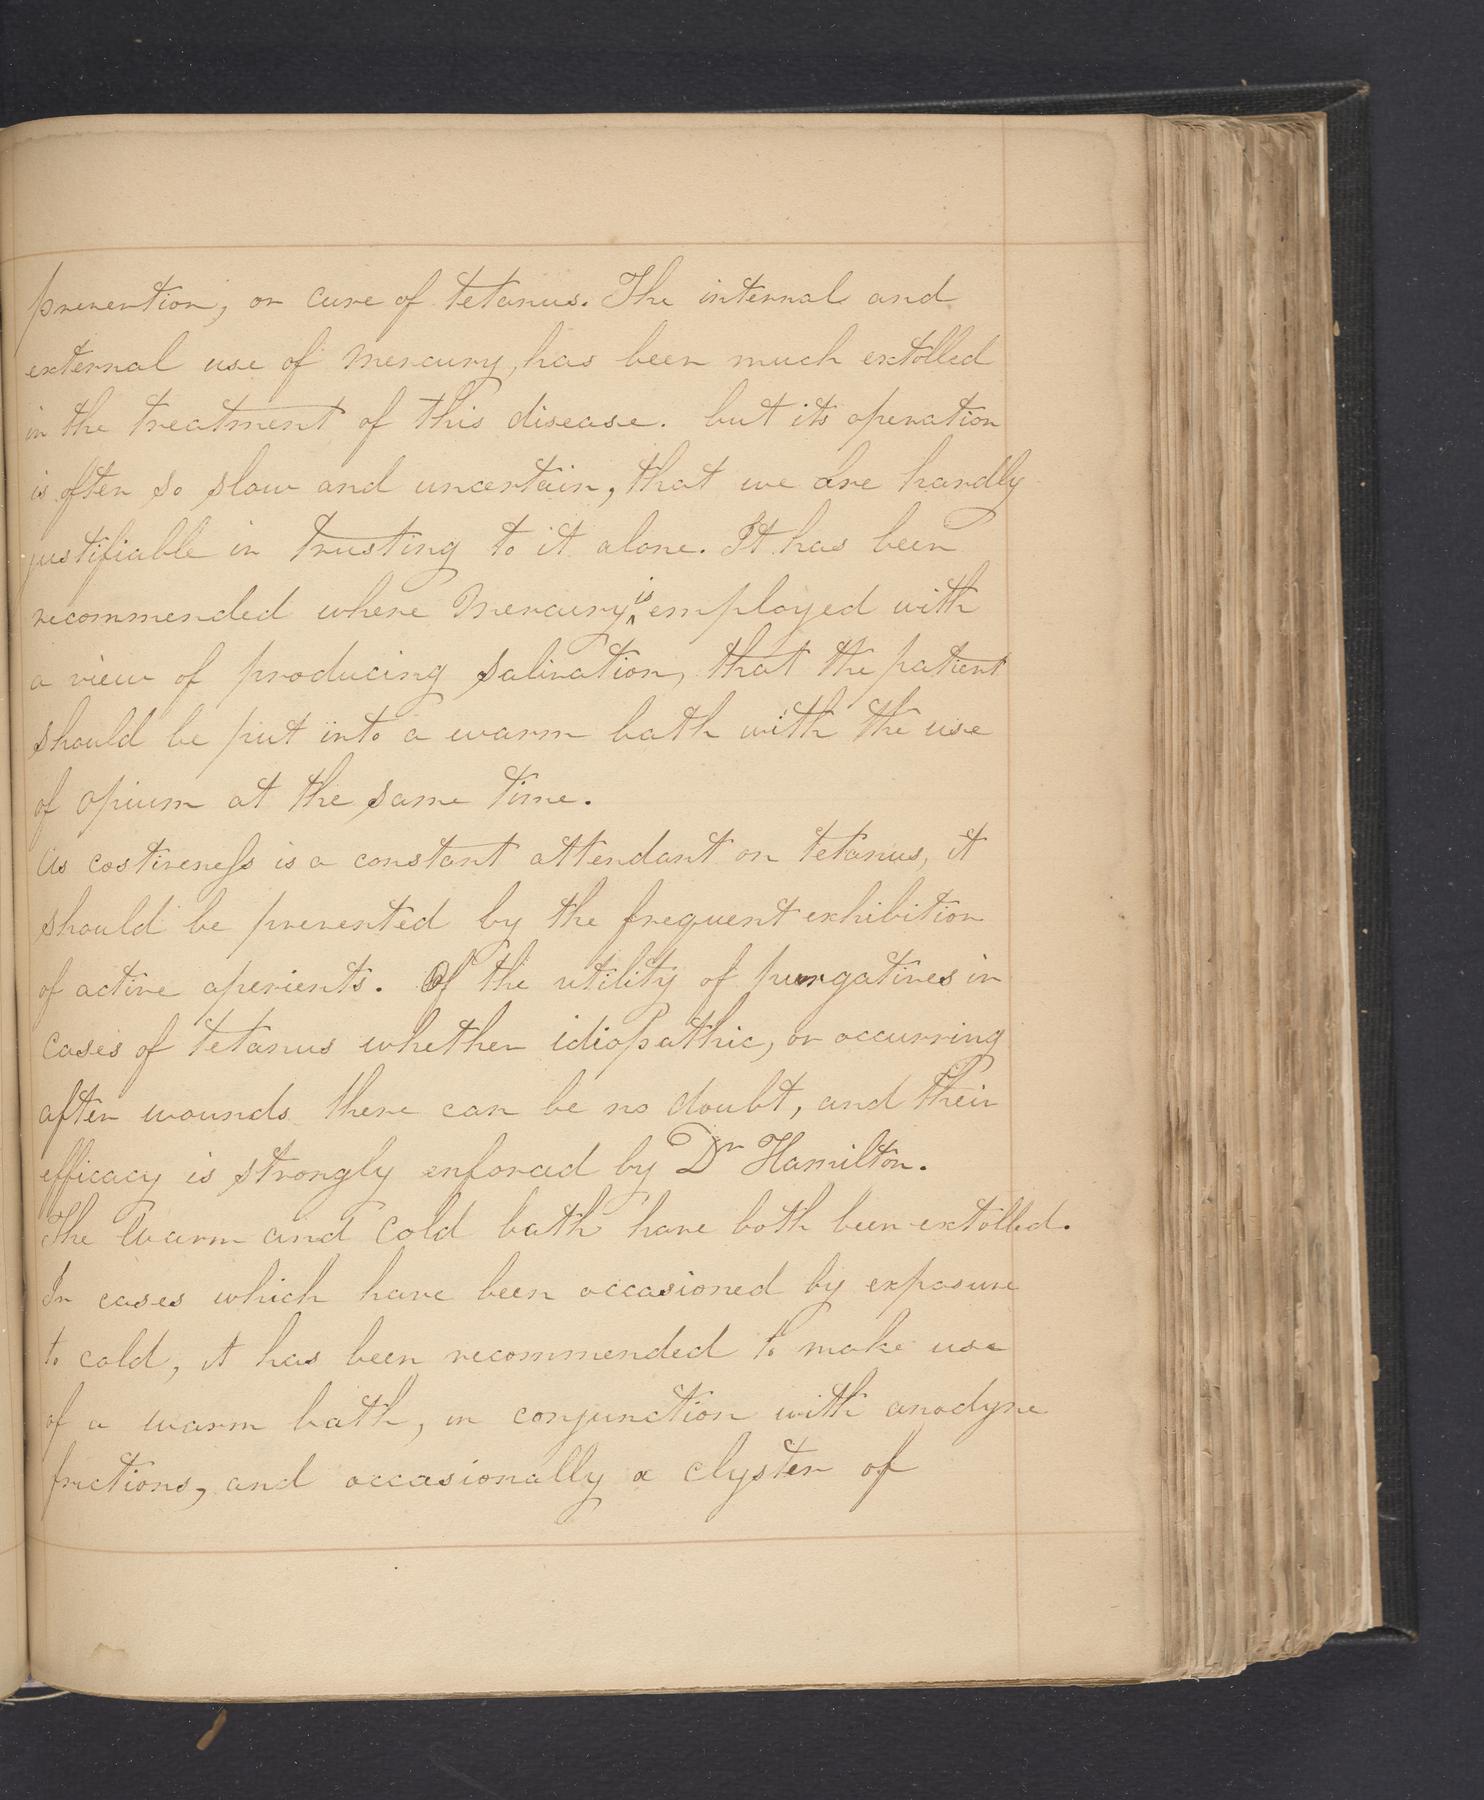 prevention, or cure of tetanus. The internal and
external use of mercury, has been much extolled
in the treatment of this disease. but its operation
is often so slow and uncertain, that we are hardly
justifiable in trusting to it alone. It has been
recommended where Mercury is employed with
a view of producing salivation, that the patient
should be put into a warm bath with the use
of opium at the same time.
As costiveness is a constant attendant on tetanus, it
should be prevented by the frequent exhibition
of active aperients. Of the utility of purgatives in
cases of tetanus whether idiopathic, or occurring
after wounds there can be no doubt, and their
efficacy is strongly enforced by Dr Hamilton.
The Warm and Cold bath have both been extolled.
In cases which have been occasioned by exposure
to cold, it has been recommended to make use
of a warm bath, in conjunction with anodyne
frictions, and occasionally a clyster of